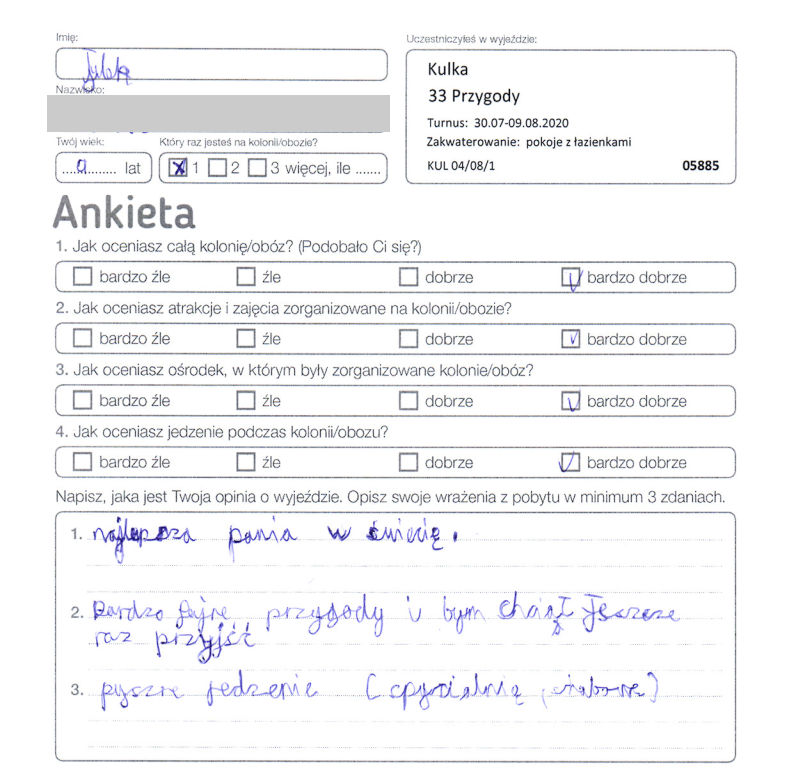 Imię:
Uczestniczyłeś w wyjeździe:
Kulka
33 Przygody
Nazwisko:
Turnus: 30.07-09.08.2020
Zakwaterowanie: pokoje z łazienkami
KUL 04/08/1 05885
Twój wiek: Który raz jesteś na kolonii/obozie?
....9........ lat x 1 2 3 więcej, ile .......
Ankieta
1. Jak oceniasz całą kolonię/obóz? (Podobało Ci się?)
bardzo źle źle dobrze bardzo dobrze
2. Jak oceniasz atrakcje i zajęcia zorganizowane na kolonii/obozie?
bardzo źle źle dobrze bardzo dobrze
3. Jak oceniasz ośrodek, w którym były zorganizowane kolonie/obóz?
bardzo źle źle dobrze bardzo dobrze
4. Jak oceniasz jedzenie podczas kolonii/obozu?
bardzo źle źle dobrze bardzo dobrze
Napisz, jaka jest Twoja opinia o wyjeździe. Opisz swoje wrażenia z pobytu w minimum 3 zdaniach.
1. najlepsza pania w świecię.
2. Bardzo fajne przygody i bym chciał jeszcze
raz przyjść
3. pyszne jedzenie (spycialnię